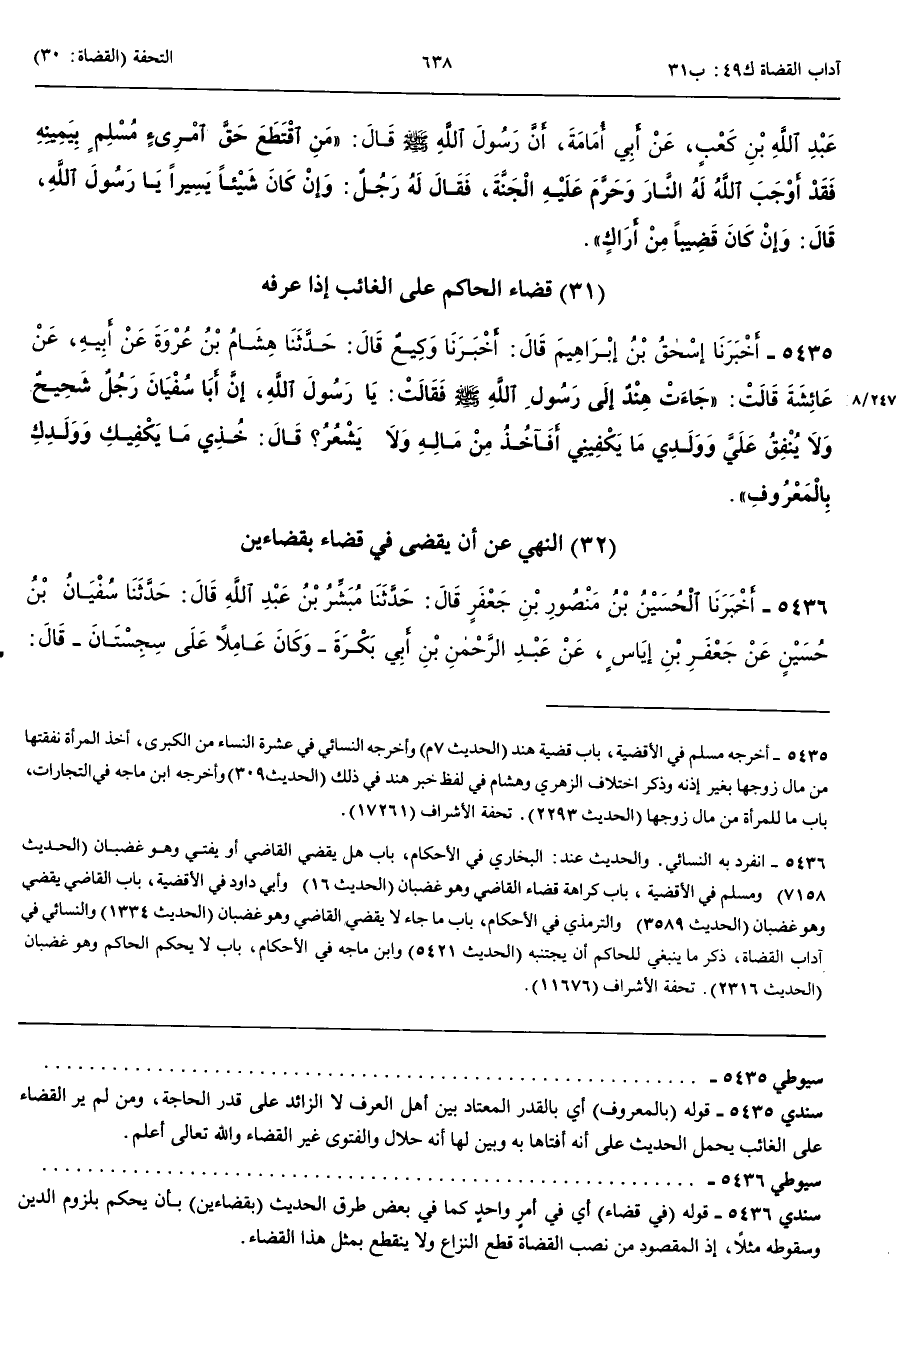 آداب القضاة ك٤٩: ب٣١ ٦٣٨ التحفة (القضاة: ٣٠)
عَبْدِ ٱللَّهِ بْنِ كَعْبٍ، عَنْ أَبِي أُمَامَةَ، أَنَّ رَسُولَ ٱللَّهِ ﷺ قَالَ: «مَنِ ٱقْتَطَعَ حَقَّ ٱمْرِىءٍ مُسْلِمٍ بِيَمِينِهِ
فَقَدْ أَوْجَبَ ٱللَّهُ لَهُ النَّارَ وَحَرَّمَ عَلَيْهِ الْجَنَّةَ، فَقَالَ لَهُ رَجُلٌ: وَإِنْ كَانَ شَيْئاً يَسِيراً يَا رَسُولَ اللَّهِ،
قَالَ: وَإِنْ كَانَ قَضِيباً مِنْ أَرَاكٍ».
(٣١) قضاء الحاكم على الغائب إذا عرفه
٥٤٣٥ ـ أَخْبَرَنَا إسْحٰقُ بْنُ إبْرَاهِيمَ قَالَ: أَخْبَرَنَا وَكِيعٌ قَالَ: حَدَّثَنَا هِشَامُ بْنُ عُرْوَةَ عَنْ أَبِيهِ، عَنْ
عَائِشَةَ قَالَتْ: «جَاءَتْ هِنْدٌ إلَى رَسُولِ ٱللَّهِ ﷺ فَقَالَتْ: يَا رَسُولَ اللَّهِ، إنَّ أَبَا سُفْيَانَ رَجُلٌ شَحِيحٌ ٨/٢٤٧
وَلَا يُنْفِقُ عَلَيَّ وَوَلَدِي مَا يَكْفِينِي أَفَآخُذُ مِنْ مَالِهِ وَلَا يَشْعُرُ؟ قَالَ: خُذِي مَا يَكْفِيكِ وَوَلَدِكِ
بِالْمَعْرُوفِ».
(٣٢) النهي عن أن يقضى في قضاء بقضاءين
٥٤٣٦ ـ أَخْبَرَنَا ٱلْحُسَيْنُ بْنُ مَنْصُورِ بْنِ جَعْفَرٍ قَالَ: حَدَّثَنَا مُبَشِّرُ بْنُ عَبْدِ ٱللَّهِ قَالَ: حَدَّثَنَا سُفْيَانُ بْنُ
حُسَيْنٍ عَنْ جَعْفَرِ بْنِ إيَاسٍ، عَنْ عَبْدِ الرَّحْمٰنِ بْنِ أَبِي بَكْرَةَ ـ وَكَانَ عَامِلًا عَلَى سِجِسْتَانَ ـ قَالَ:
٥٤٣٥ ـ أخرجه مسلم في الأقضية، باب قضية هند (الحديث ٧م) وأخرجه النسائي في عشرة النساء من الكبرى، أخذ المرأة نفقتها
من مال زوجها بغير إذنه وذكر اختلاف الزهري وهشام في لفظ خبر هند في ذلك (الحديث٣٠٩) وأخرجه ابن ماجه في التجارات،
باب ما للمرأة من مال زوجها (الحديث ٢٢٩٣). تحفة الأشراف (١٧٢٦١).
٥٤٣٦ ـ انفرد به النسائي. والحديث عند: البخاري في الأحكام، باب هل يقضي القاضي أو يفتي وهو غضبان (الحديث
٧١٥٨) ومسلم في الأقضية، باب كراهة قضاء القاضي وهو غضبان (الحديث ١٦) وأبي داود في الأقضية، باب القاضي يقضي
وهو غضبان (الحديث ٣٥٨٩) والترمذي في الأحكام، باب ما جاء لا يقضي القاضي وهو غضبان (الحديث ١٣٣٤) والنسائي في
آداب القضاة، ذكر ما ينبغي للحاكم أن يجتنبه (الحديث ٥٤٢١) وابن ماجه في الأحكام، باب لا يحكم الحاكم وهو غضبان
(الحديث ٢٣١٦). تحفة الأشراف (١١٦٧٦).
سيوطي ٥٤٣٥ ـ . . . . . . . . . . . . . . . . . . . . . . . . . . . . . .
سندي ٥٤٣٥ ـ قوله (بالمعروف) أي بالقدر المعتاد بين أهل العرف لا الزائد على قدر الحاجة، ومن لم ير القضاء
على الغائب يحمل الحديث على أنه أفتاها به وبين لها أنه حلال والفتوى غير القضاء والله تعالى أعلم.
سيوطي ٥٤٣٦ ـ . . . . . . . . . . . . . . . . . . . . . . . . . . . . . .
سندي ٥٤٣٦ ـ قوله (في قضاء) أي في أمرٍ واحدٍ كما في بعض طرق الحديث (بقضاءين) بأن يحكم بلزوم الدين
وسقوطه مثلًا، إذ المقصود من نصب القضاة قطع النزاع ولا ينقطع بمثل هذا القضاء.